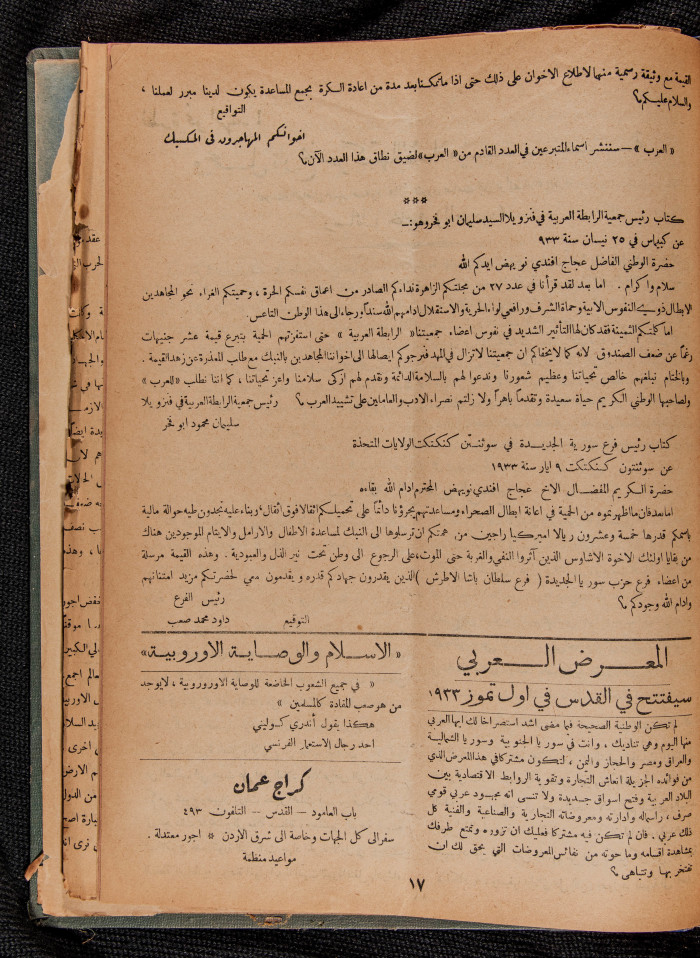 القيمة مع وثيقة رسمية منها لاطلاع الاخوان على ذلك حتى اذا ما تمكنا بعد مدة من اعادة الكرة بجمع المساعدة يكون لدينا مبرر لعملنا ،
والسلام عليكم ؟
التواقيع
اخوانكم المهاجرون في المكسيك
« العرب » — سننشر اسماء المتبرعين في العدد القادم من « العرب » لضيق نطاق هذا العدد الآن ؟
***
كتاب رئيس جمعية الرابطة العربية في فنزويلا السيد سليمان ابو فخر وهو :—
عن كيباس في ٢٥ نيسان سنة ٩٣٣
حضرة الوطني الفاضل عجاج افندي نويهض ايدكم الله
سلام واكرام . اما بعد لقد قرأنا في عدد ٢٧ من مجلتكم الزاهرة نداءكم الصادر من اعماق نفسكم الحرة ، وحميتكم الغراء نحو المجاهدين
الابطال ذوي النفوس الابية وحماة الشرف ورافعي لواء الحرية والاستقلال ادامهم الله سنداً ورجاء الى هذا الوطن التاعس .
اما كلمتكم الثمينة فقد كان لها التأثير الشديد في نفوس اعضاء جمعيتنا « الرابطة العربية » حتى استفزتهم الحمية بتبرع قيمة عشر جنيهات
رغماً عن ضعف الصندوق لانه كما لا يخفاكم ان جمعيتنا لا تزال في المهد فنرجوكم ايصالها الى اخواننا المجاهدين بالنبك مع طلب المعذرة عن زهد القيمة .
وبالختام نبلغهم خالص تحياتنا وعظيم شعورنا وندعوا لهم بالسلامة الدائمة ونقدم لهم ازكى سلامنا واعز تحياتنا ، كما اننا نطلب « للعرب »
ولصاحبها الوطني الكريم حياة سعيدة وتقدماً باهراً ولا زلتم نصراء الادب والعاملين على تشييد العرب ؟ رئيس جمعية الرابطة العربية في فنزويلا
سليمان محمود ابو فخر
كتاب رئيس فرع سورية الجديدة في سوثنتن كنكتكت الولايات المتحدة
عن سوثنتون كنكتكت ٩ ايار سنة ١٩٣٣
حضرة الكريم المفضال الاخ عجاج افندي نويهض المحترم ادام الله بقاءه
اما بعد فان ما اظهرتموه من الحمية في اعانة ابطال الصحراء ومساعدتهم يجرؤنا دائماً على تحميلكم اثقالا فوق اثقال ، وبناء عليه تجدون طيه حوالة مالية
باسمكم قدرها خمسة وعشرون ريالا اميركيا راجين من همتكم ان ترسلوها الى النبك لمساعدة الاطفال والارامل والايتام الموجودين هناك
من بقايا اولئك الاخوة الاشاوس الذين آثروا النفي والغربة حتى الموت ، على الرجوع الى وطن تحت نير الذل والعبودية . وهذه القيمة مرسلة
من اعضاء فرع حزب سوريا الجديدة ( فرع سلطان باشا الاطرش ) الذين يقدرون جهادكم قدره ويقدمون معي لحضرتكم مزيد امتنانهم
وادام الله وجودكم ؟
رئيس الفرع
التوقيع داود محمد صعب
المعرض العربي
سيفتتح في القدس في اول تموز ١٩٣٣
لم تكن الوطنية الصحيحة فيما مضى اشد استصراخا لك ايها العربي
منها اليوم وهي تناديك ، وانت في سوريا الجنوبية وسوريا الشمالية
والعراق ومصر والحجاز واليمن ، لتكون مشتركا في هذا المعرض الذي
من فوائده الجزيلة انعاش التجارة وتقوية الروابط الاقتصادية بين
البلاد العربية وفتح اسواق جديدة ولا تنسى انه مجهود عربي قومي
صرف ، راسماله وادارته ومعروضاته التجارية والصناعية والفنية كل
ذلك عربي . فان لم تكن فيه مشتركا فعليك ان تزوره وتمتع طرفك
بمشاهدة اقسامه وما حوته من نفائس المعروضات التي يحق لك ان
تفتخر بها وتتباهى ؟
« الاسلام والوصاية الاوروبية »
« في جميع الشعوب الخاضعة للوصاية الاوروروبية ، لا يوجد
من هو صعب المقادة كالمسلمين »
هكذا يقول أندري كسوليني
احد رجال الاستعمار الفرنسي
كراج عمان
باب العامود — القدس — التلفون ٤٩٣
سفر الى كل الجهات وخاصة الى شرق الاردن * اجور معتدلة .
مواعيد منظمة
١٧